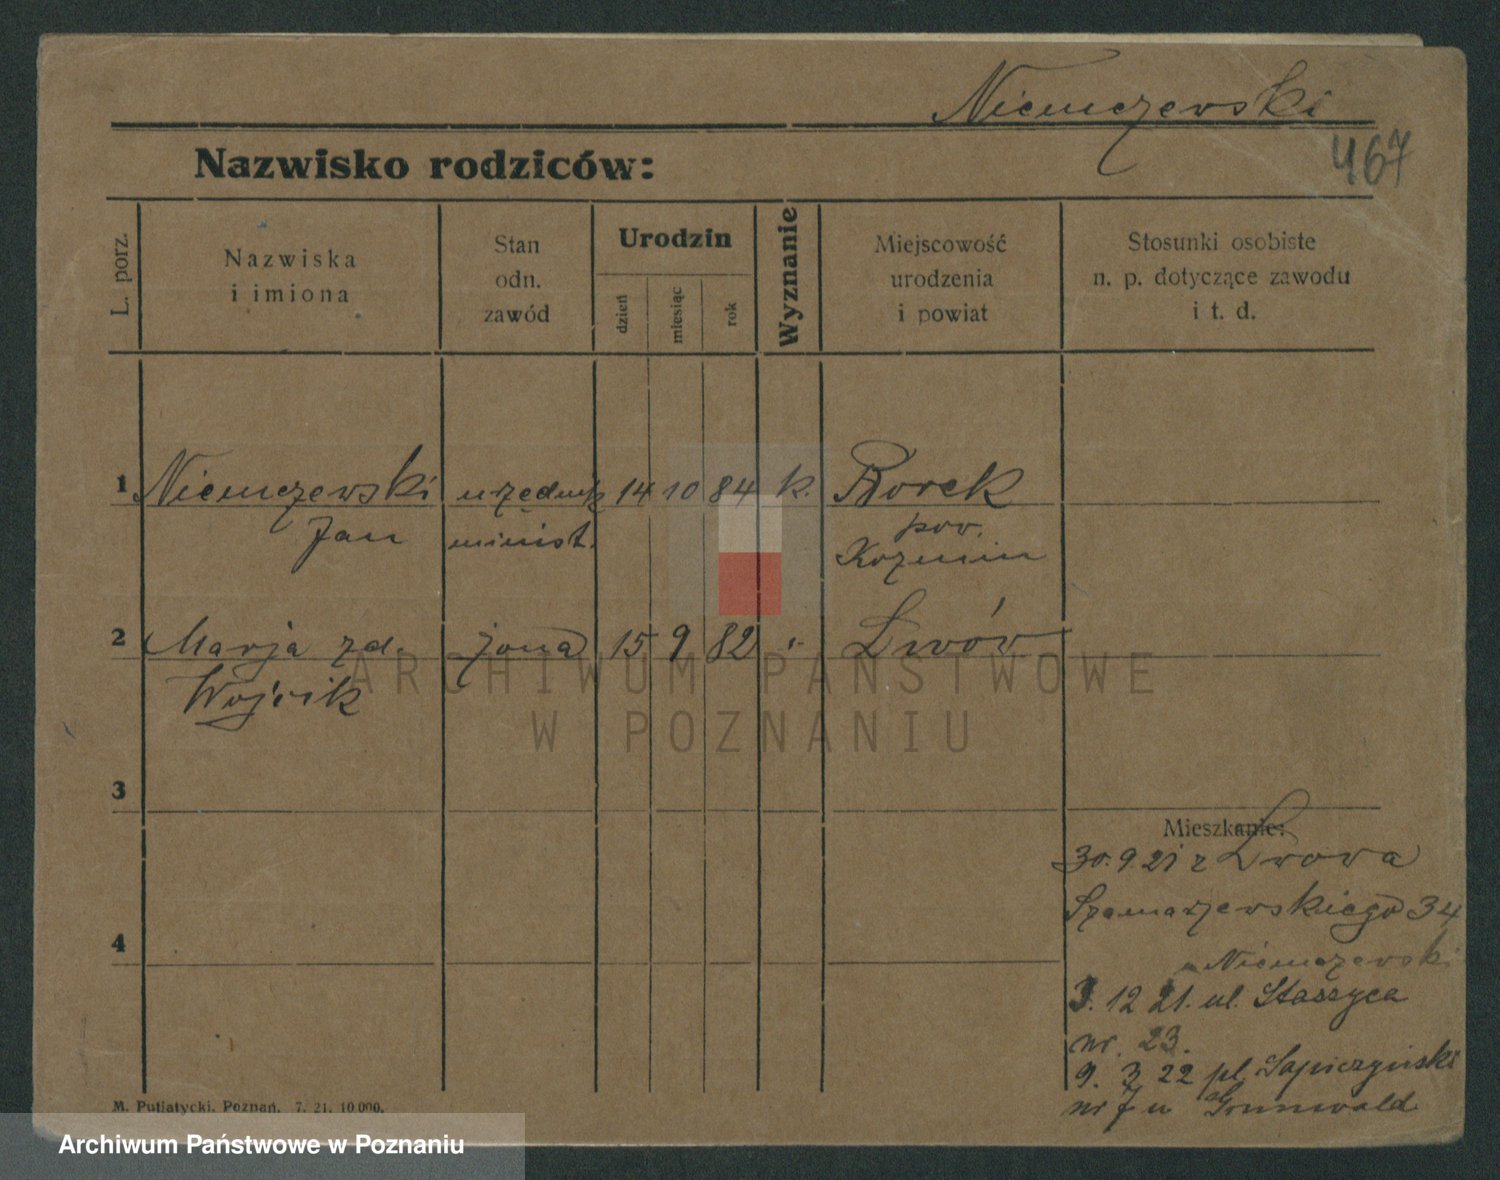 Niemczewski
467
Nazwisko rodziców:
L. porz.
Nazwiska
i imiona
Stan
odn.
zawód
Urodzin
dzień
miesiąc
rok
Wyznanie
Miejscowość
urodzenia
i powiat
Stosunki osobiste
n. p. dotyczące zawodu
i t. d.
1 Niemczewski urzędnik 14 10 84 k. Borek
Jan minist. pow.
Kozmin
2 Marja zd. żona 15 9 82 „ Lwów
Wojcik
ARCHIWUM PAŃSTWOWE
W POZNANIU
3
Mieszkanie:
30. 9 21 z Lwowa
Szamarzewskiego 34
4
Niemczewski
3. 12 21. ul. Staszyca
nr. 23.
9. 3 22 pl. Sapieżyński
nr 7 u Grunwald
M. Putiatycki, Poznań. 7. 21. 10.000.
Archiwum Państwowe w Poznaniu